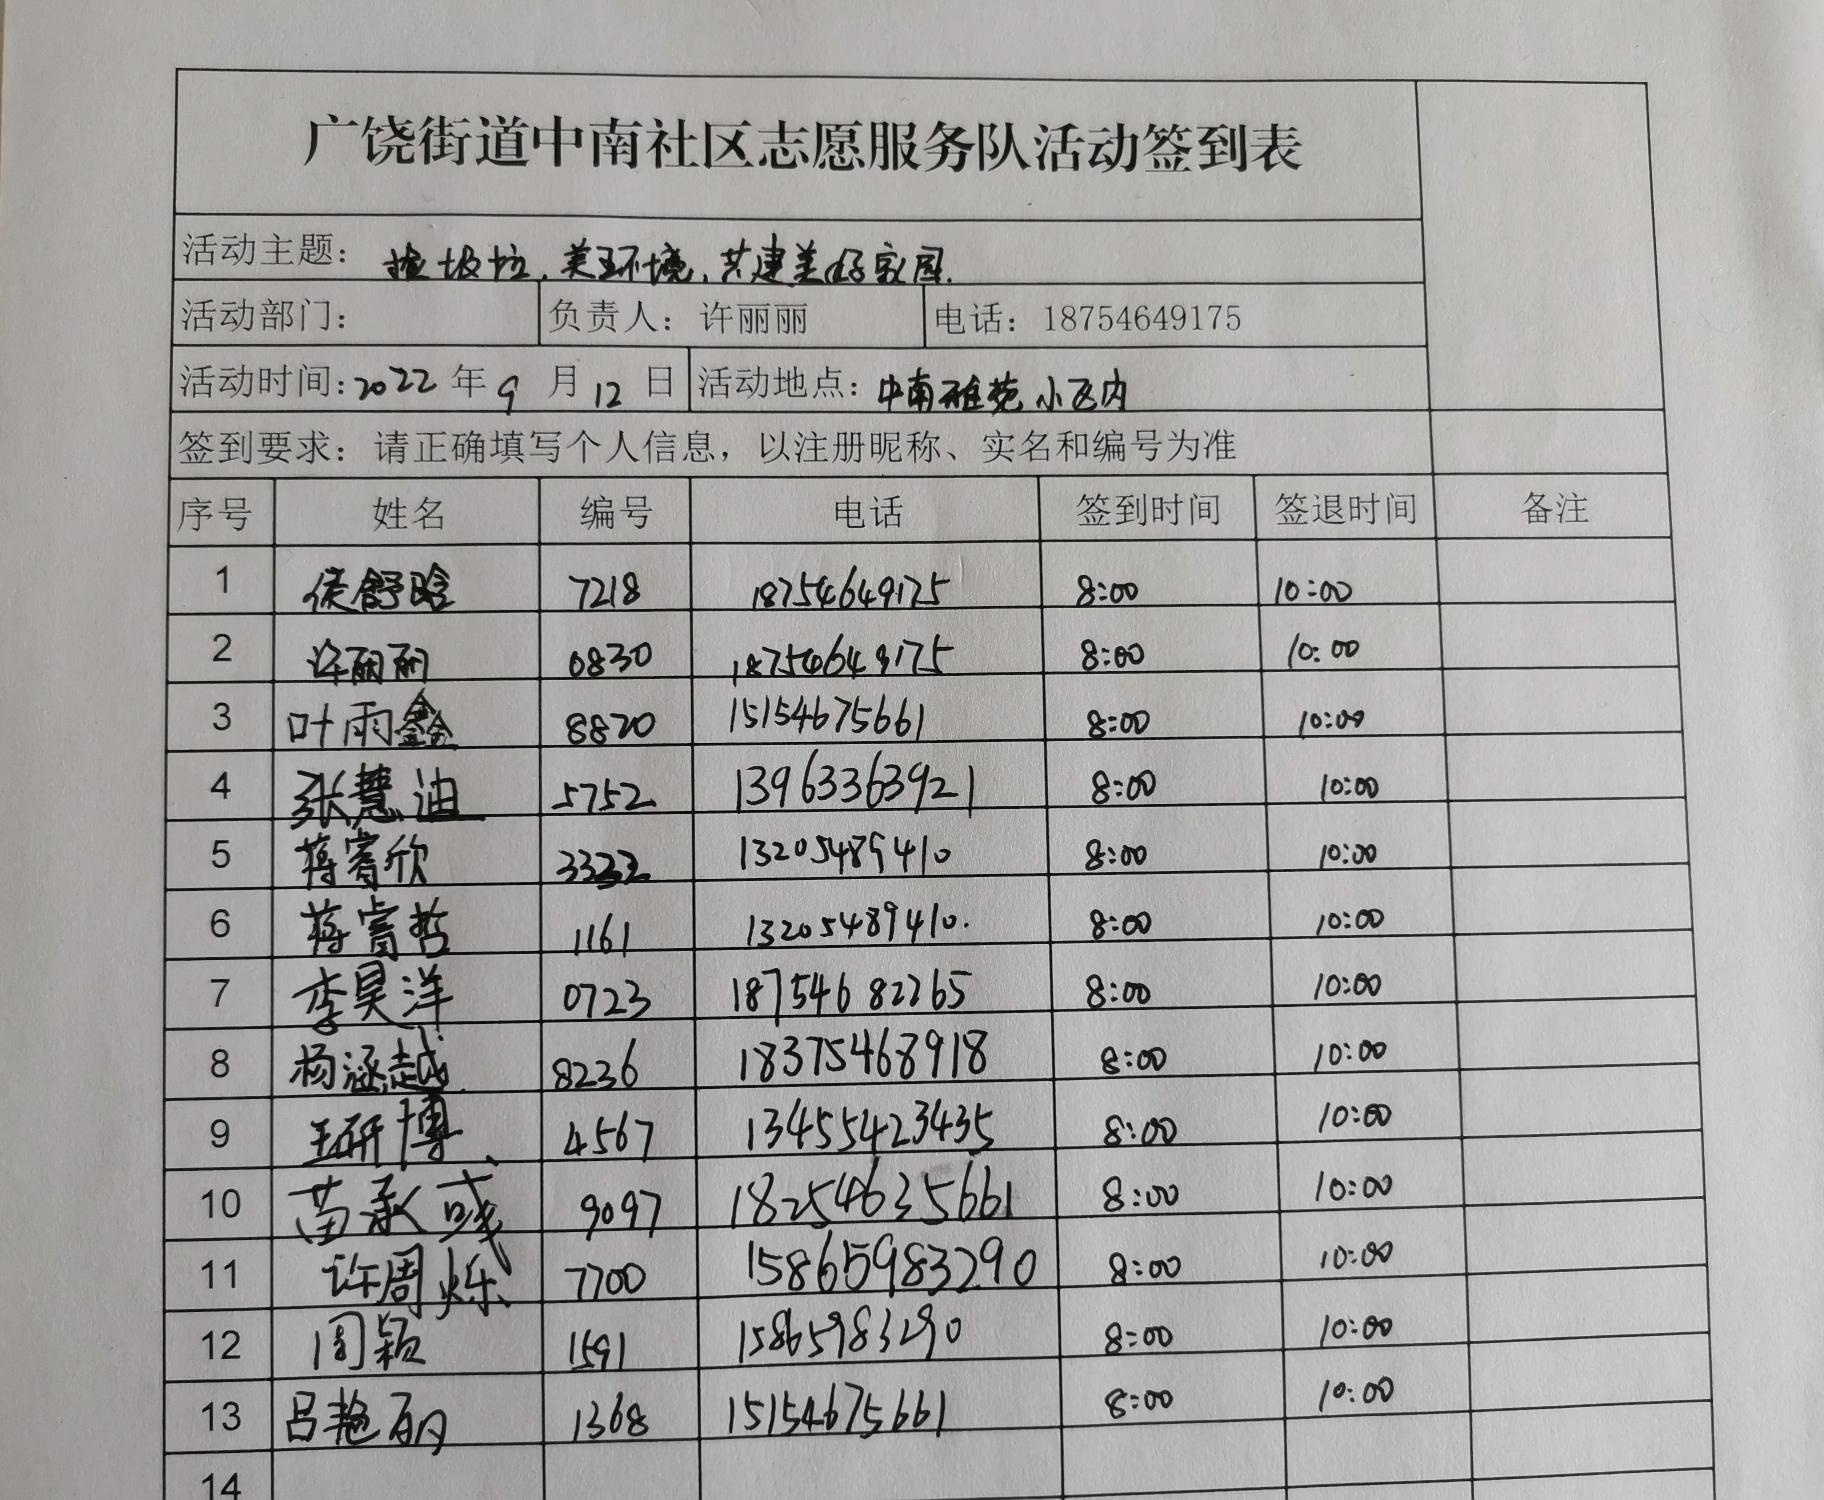 广饶街道中南社区志愿服务队活动签到表
活动主题：捡垃圾，美环境，共建美好家园.
活动部门： 负责人：许丽丽 电话：18754649175
活动时间:2022年9月12日 活动地点：中南雅苑小区内
签到要求：请正确填写个人信息，以注册昵称、实名和编号为准
序号 姓名 编号 电话 签到时间 签退时间 备注
1 侯舒晗 7218 18754649175 8:00 10:00
2 许丽丽 0830 18754649175 8:00 10:00
3 叶雨鑫 8820 15154675661 8:00 10:00
4 张慧迪 5752 13963363921 8:00 10:00
5 蒋睿欣 3332 13205489410 8:00 10:00
6 蒋睿哲 1161 13205489410. 8:00 10:00
7 李昊洋 0723 18754682265 8:00 10:00
8 杨涵越 8236 18375468918 8:00 10:00
9 王研博 4567 13455423435 8:00 10:00
10 苗承彧 9097 18254635661 8:00 10:00
11 许周烁 7700 15865983290 8:00 10:00
12 周颖 1591 15865983290 8:00 10:00
13 吕艳丽 1368 15154675661 8:00 10:00
14